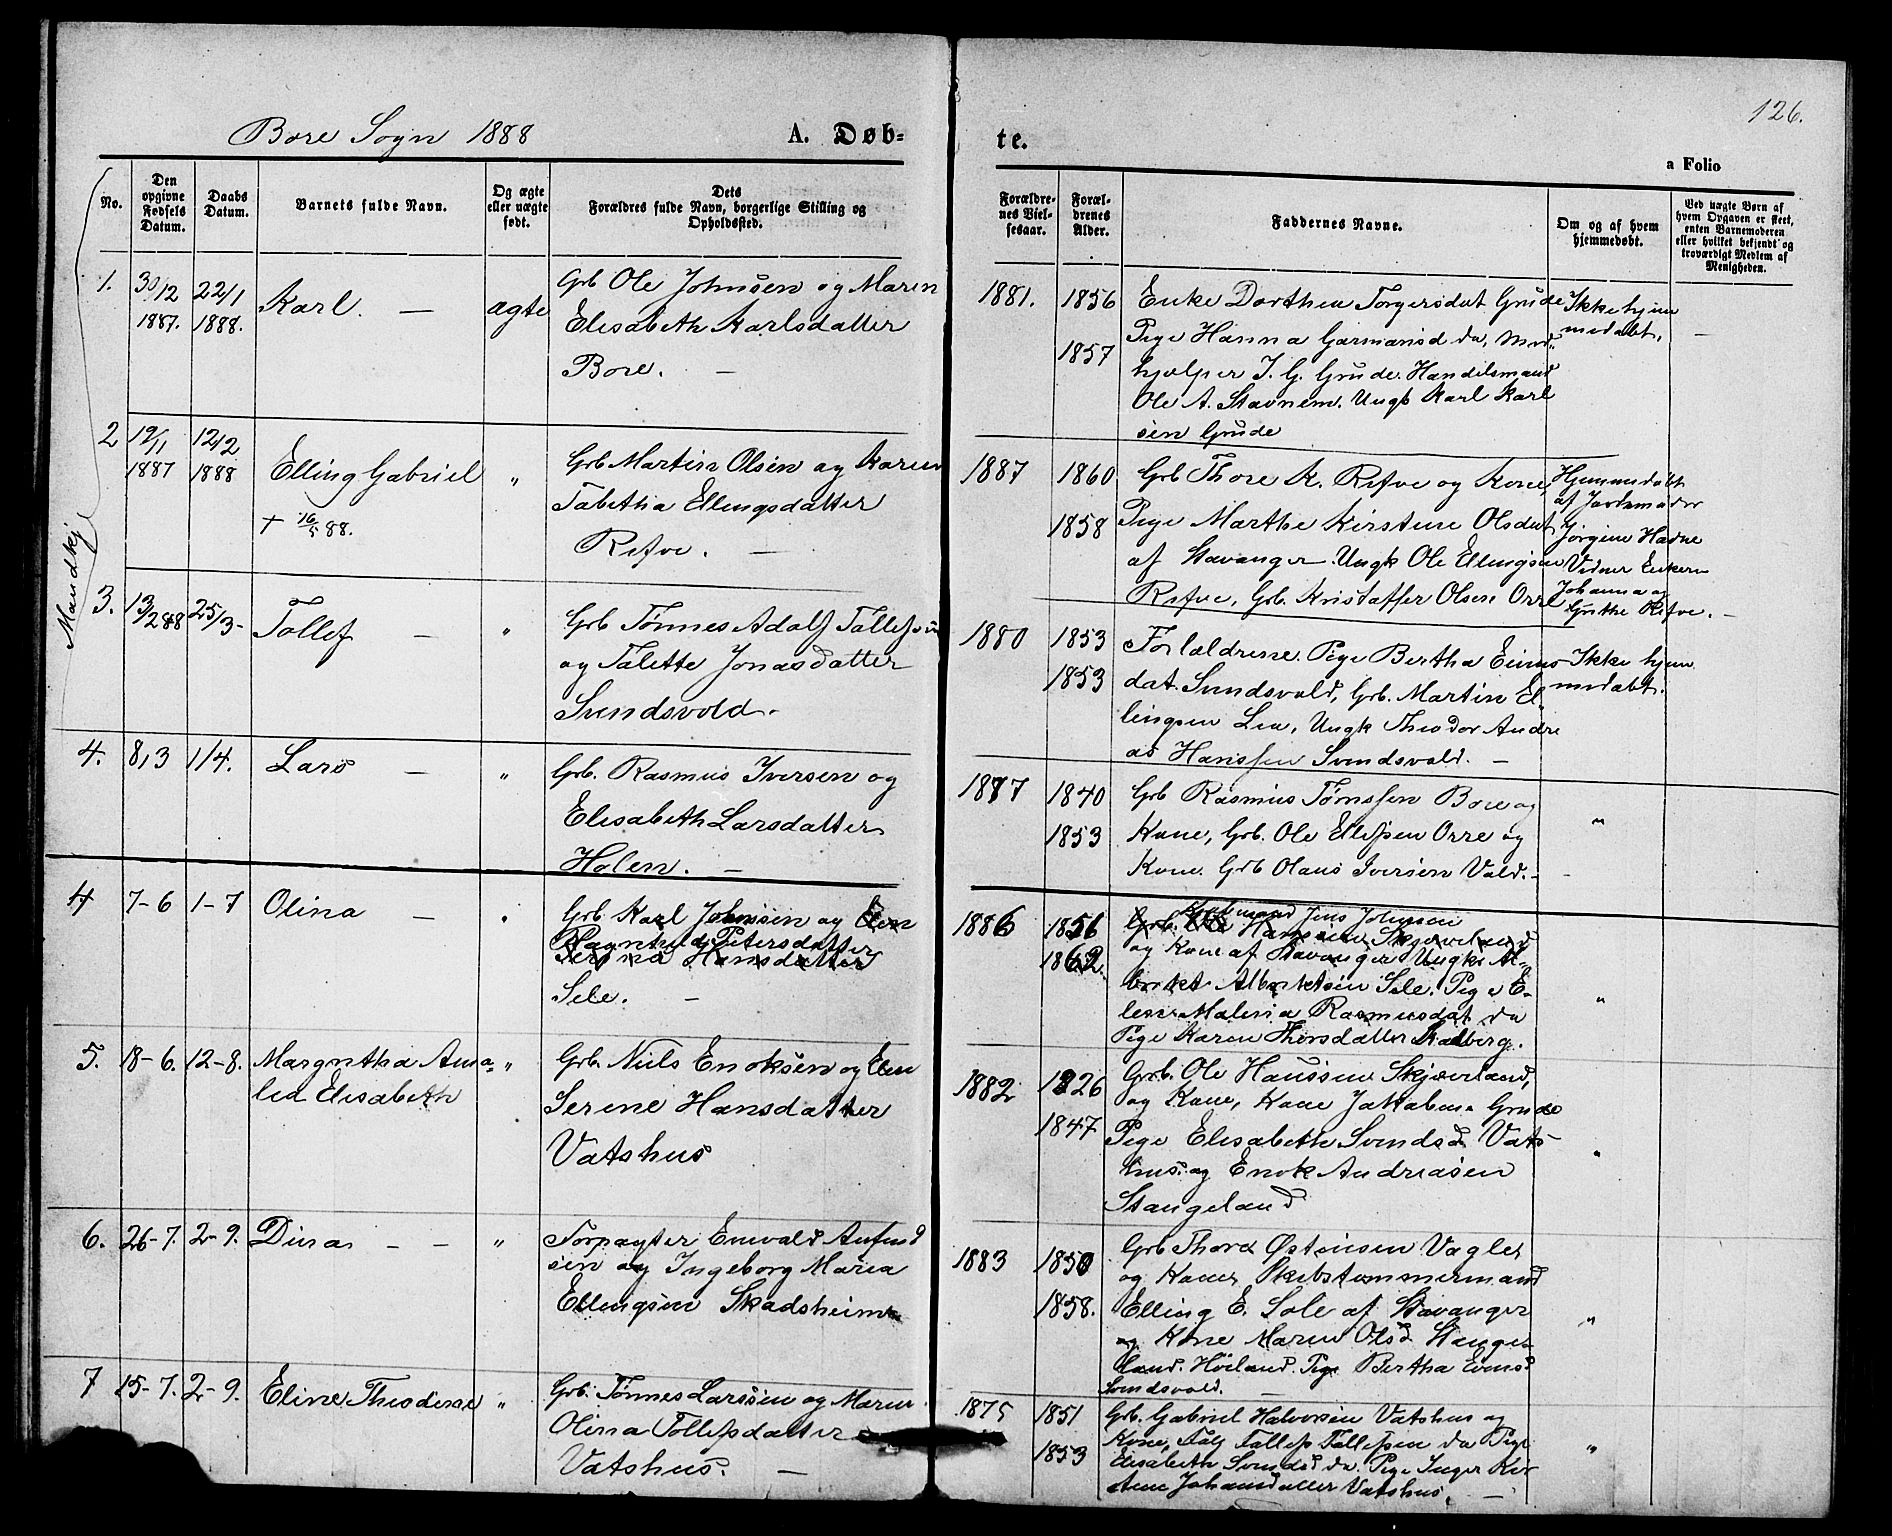 126.
Bore Sogn 1888
A. Døb=
te.
a Folio
No.
Den opgivne Fødsels Datum.
Daabs Datum.
Barnets fulde Navn.
Og ægte eller uægte født.
Dets Forældres fulde Navn, borgerlige Stilling og Opholdssted.
Forældrenes Vielsesaar.
Forældrenes Alder.
Faddernes Navne.
Om og af hvem hjemmedøbt.
Ved uægte Børn af hvem Opgaven er skeet, enten Barnemoderen eller hvilket bekjendt og troværdigt Medlem af Menigheden.
Mandkj
1. 30/12 1887. 22/1 1888. Karl. — ægte
Grb Ole Johnsen og Maren
Elisabeth Karlsdatter
Bore. —
1881. 1856
1857
Enke Dorthea Torgersdat Grude
Pige Hanna Garmansd do, Med-
hjælper J. G. Grude. Handelsmand
Ole A. Stavnem. Ungk Karl Karl
sen Grude
Ikke hjem
medøbt.
—
2 19/11 1887 12/2 1888 Elling Gabriel "
+ 16/5 88.
Grb Martin Olsen og Karen
Tabetha Ellingsdatter
Refve. —
1887 1860
1858
Grb Thore K. Refve og Kone,
Pige Marthe Kirstine Olsdat
af Stavanger. Ungk Ole Ellingsen
Refve, Grb. Kristoffer Olsen Orre
Hjemmedøbt
af Jordemoder
Jørgine Hadne
Vidner Enkem
Johanna og
Grethe Refve. —
3. 13/2 88 25/3- Tollef — "
Grb Tønnes Adolf Tollefsen
og Talette Jonasdatter
Svendsvold.
1880 1853
1853
Forældrene. Pige Bertha Eiens
dat. Svendsvold, Grb. Martin El
lingsen Lea, Ungk Theodor Andre
as Hanssen Svendsvold. —
Ikke hjem
medøbt.
4. 8/3 1/4. Lars — "
Grb. Rasmus Iversen og
Elisabeth Larsdatter
Holen. —
1877 1840
1853
Grb Rasmus Tønssen Bore og
Kone, Grb. Ole Ellefsen Orre og
Kone. Grb Olaus Iversen Vold. -
"
4 7-6 1-7 Olina —
Grb Karl Johnsen og Elen
Magnhild Petersdatter
Serina Hansdatter
Sele. —
1886 1856
1862
Jens Johnsen
Grb. Ole Hanssen Skjæveland
og Kone af Stavanger Ungk Al-
brikt Albriktsen Sele. Pige E-
len Malena Rasmusdat do
Pige Karen Thorsdatter Stadberg.
"
5. 18-6. 12-8. Margretha Ama-
lia Elisabeth "
Grb. Niels Enoksen og Elen
Serene Hansdatter
Vatshus
1882 1826
1847
Grb. Ole Hanssen Skjæveland,
og Kone, Kone Jakobine Grude
Pige Elisabeth Svendsd Vats-
hus. og Enok Andreasen
Stangeland
"
6. 26-7. 2-9. Dina — — "
Forpagter Enevald Anfind
sen og Ingeborg Maria
Ellingsen Skadsheim
1883 1850
1858.
Grb Thore Østensen Vagle
og Kone, Skibstømmermand
Elling E. Sole af Stavanger
og Kone Maren Olsd Stange-
land. Høiland. Pige Bertha Evensd
Svendsvold. —
"
7 15-7. 2-9. Eline Theodine "
Grb. Tønnes Larssen og Maren
Olina Tollefsdatter
Vatshus. —
1875 1851
1853
Grb. Gabriel Halvorsen Vatshus og
Kone, Tollef Tollefsen do Pige
Elisabeth Svendsd do. Pige Inger Kir
stine Johansdatter Vatshus. —
"